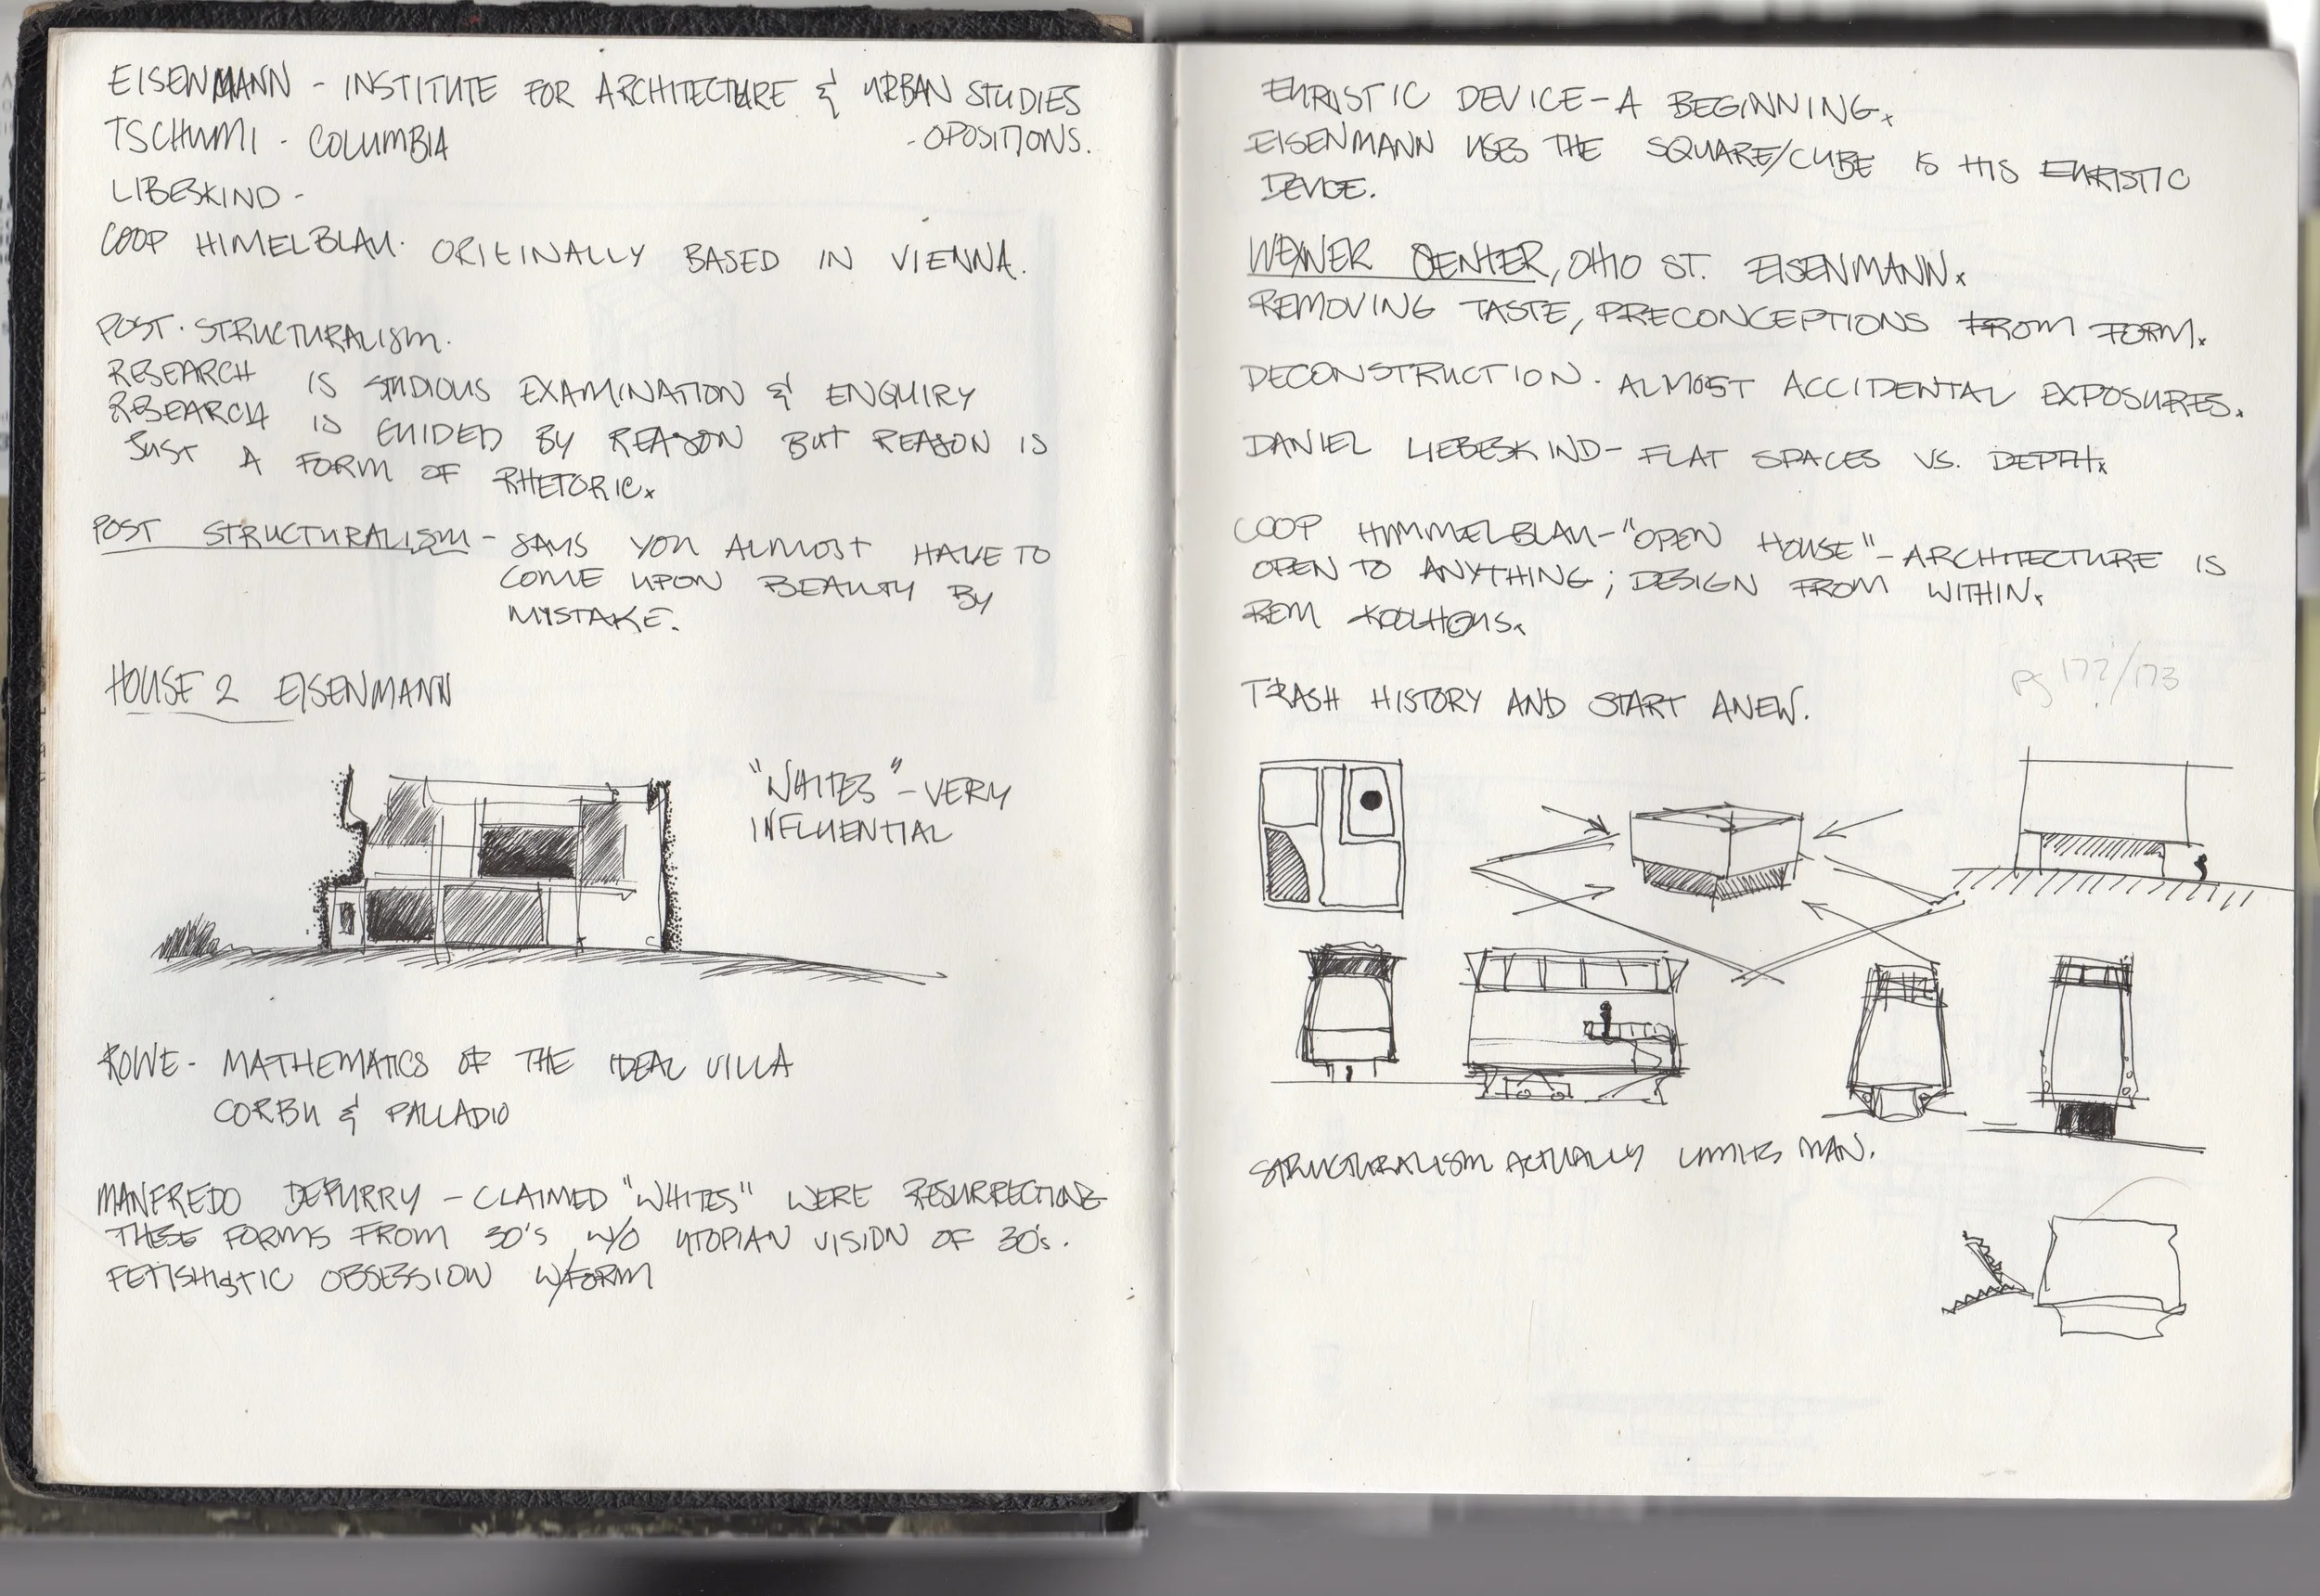 EISENMANN - INSTITUTE FOR ARCHITECTURE & URBAN STUDIES
TSCHUMI - COLUMBIA - OPOSITIONS.
LIBESKIND -
COOP HIMELBLAU. ORIGINALLY BASED IN VIENNA.
POST. STRUCTURALISM.
RESEARCH IS STUDIOUS EXAMINATION & ENQUIRY
RESEARCH IS GUIDED BY REASON BUT REASON IS
JUST A FORM OF RHETORIC.
POST STRUCTURALISM - SAYS YOU ALMOST HAVE TO
COME UPON BEAUTY BY
MISTAKE.
HOUSE 2 EISENMANN
"WHITES" - VERY
INFLUENTIAL
ROWE - MATHEMATICS OF THE IDEAL VILLA
CORBU & PALLADIO
MANFREDO DEPURRY - CLAIMED "WHITES" WERE RESURRECTING
THESE FORMS FROM 30'S W/O UTOPIAN VISION OF 30's.
FETISHISTIC OBSESSION W/FORM
EURISTIC DEVICE - A BEGINNING.
EISENMANN USES THE SQUARE/CUBE IS HIS EURISTIC
DEVICE.
WEXNER CENTER, OHIO ST. EISENMANN.
REMOVING TASTE, PRECONCEPTIONS FROM FORM.
DECONSTRUCTION. ALMOST ACCIDENTAL EXPOSURES.
DANIEL LIEBESKIND - FLAT SPACES VS. DEPTH.
COOP HIMMELBLAU - "OPEN HOUSE" - ARCHITECTURE IS
OPEN TO ANYTHING; DESIGN FROM WITHIN.
REM KOOLHOUS.
pg 172/173
TRASH HISTORY AND START ANEW.
STRUCTURALISM ACTUALLY LIMITS MAN.